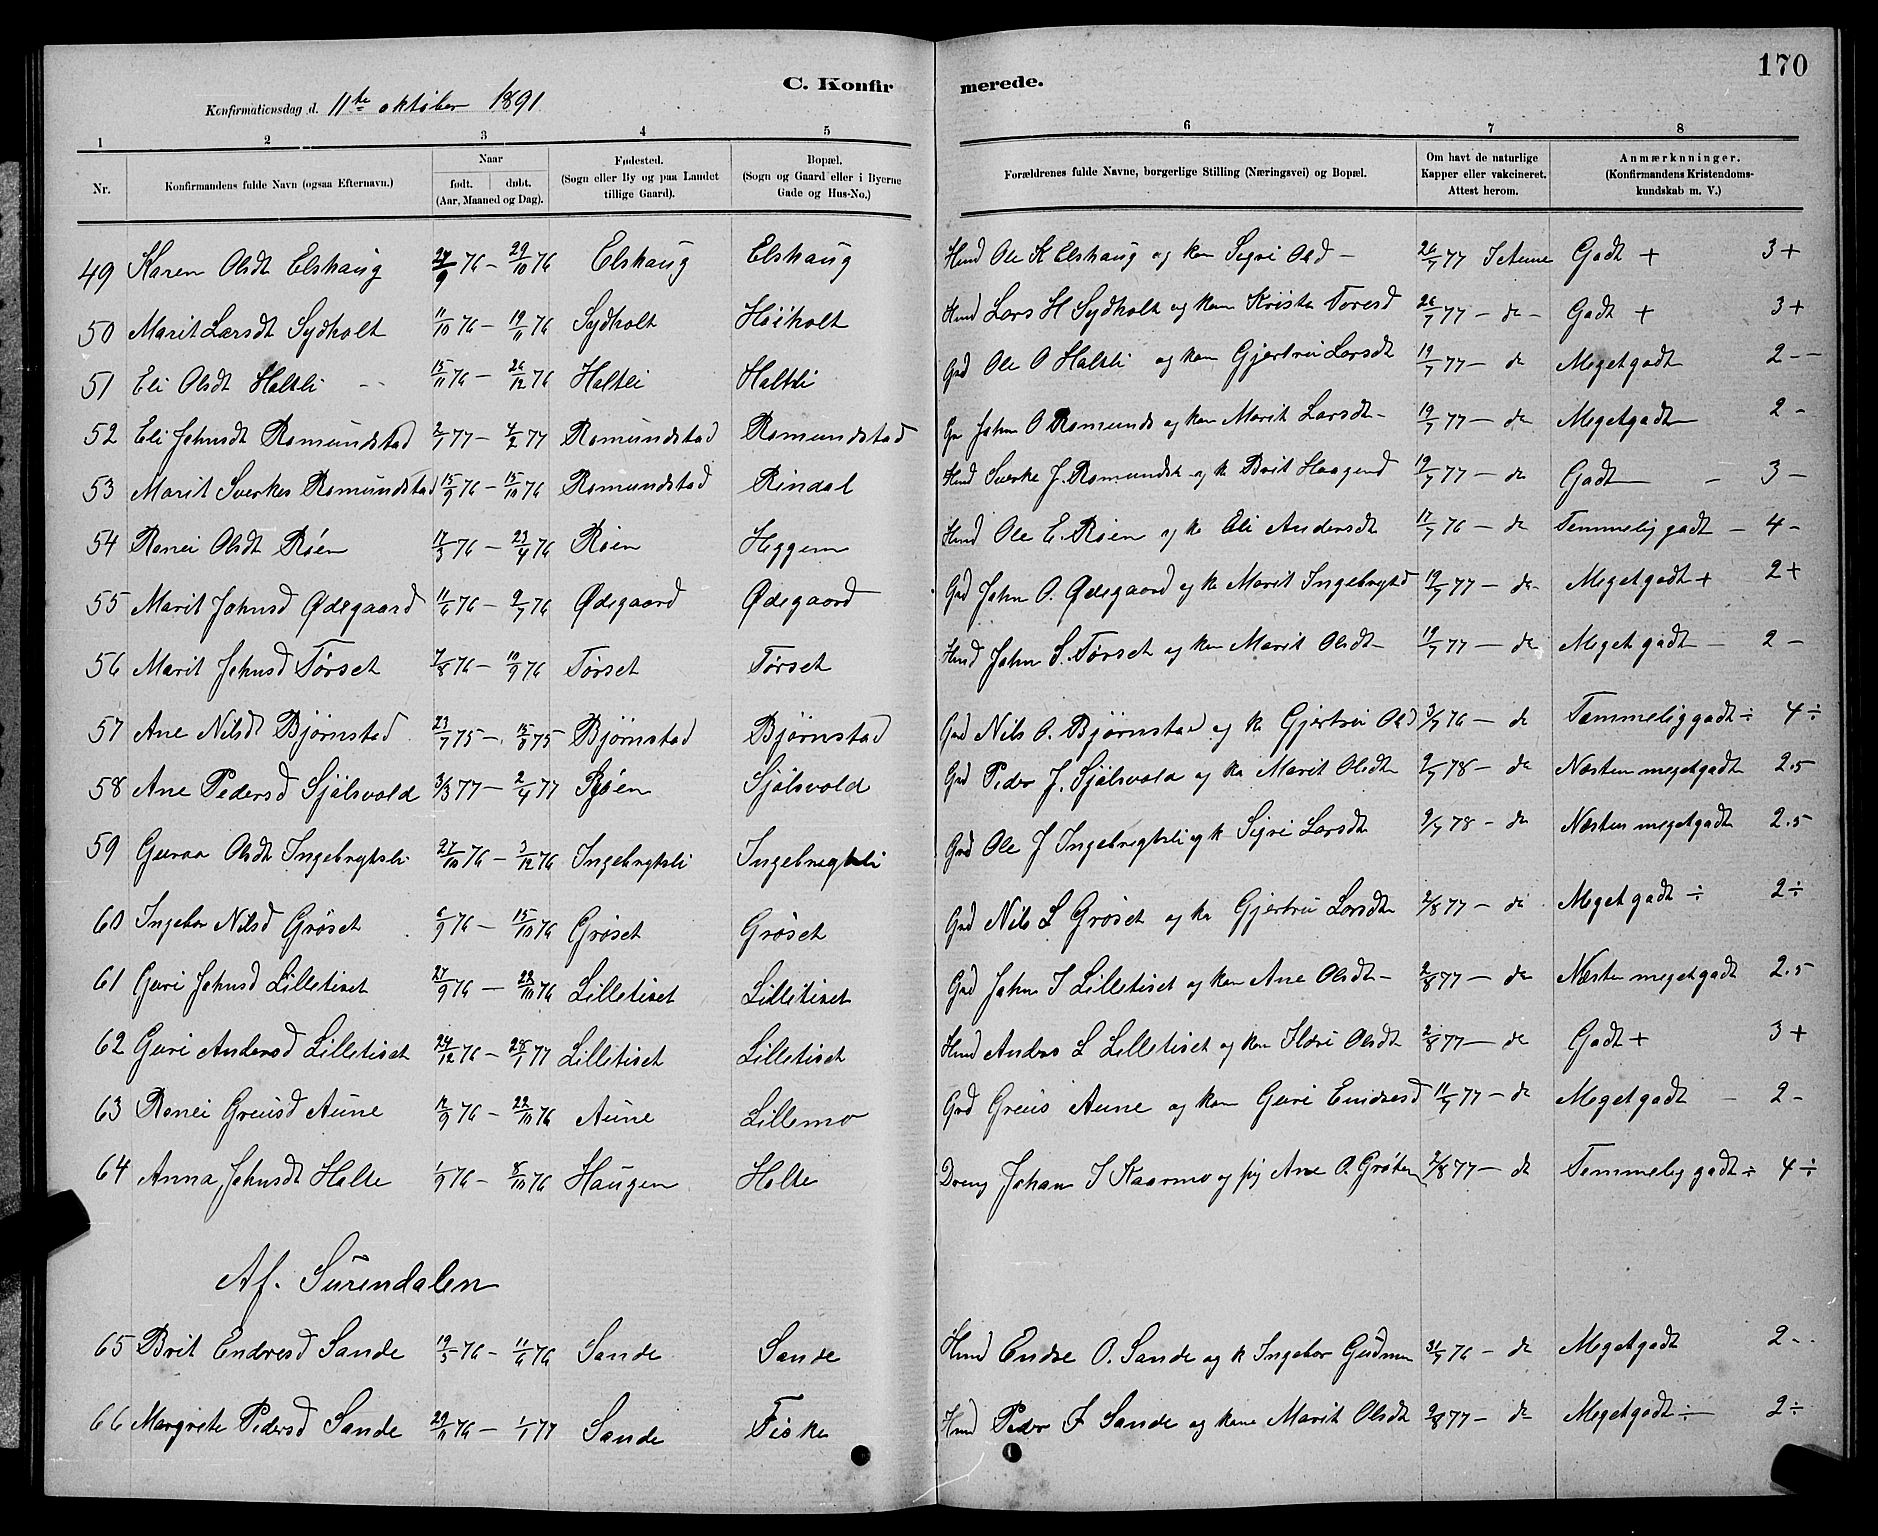 170
C. Konfir merede.
Konfirmationsdag d. 11te oktober 1891.
1 2 3 4 5 6 7 8
Nr. Konfirmandens fulde Navn (ogsaa Efternavn.) Naar født. døbt. (Aar, Maaned og Dag). Fødested. (Sogn eller By og paa Landet tillige Gaard). Bopæl. (Sogn og Gaard eller i Byerne Gade og Hus-No.) Forældrenes fulde Navne, borgerlige Stilling (Næringsvei) og Bopæl. Om havt de naturlige Kapper eller vakcineret. Attest herom. Anmærknninger. (Konfirmandens Kristendoms-kundskab m. V.)
49 Karen Olsdt Elshaug 24/9 76 – 29/10 76 Elshaug Elshaug Hmd Ole K Elshaug og kon Sigri Olsd – 26/7 77 J Aune Godt + 3+
50 Marit Larsdt Sydholt 11/10 76 – 19/11 76 Sydholt Höiholt Hmd Lars H Sydholt og kon Kristn Toresd 26/7 77 – do – Godt + 3+
51 Eli Olsdt Haltli 15/11 76 – 26/12 76 Haltli Haltli Grd Ole O Haltli og kon Gjertru Larsdt 19/7 77 – do Megetgodt 2 –
52 Eli Johnsdt Romundstad 2/1 77 – 4/2 77 Romundstad Romundstad Gr John O Romunds og kon Marit Larsdt – 19/7 77 – do Megetgodt – 2 –
53 Marit Sverkes Romundstad 15/9 76 – 15/10 76 Romundstad Rindal Hmd Sverke J. Romundst og k Brit Haagensd 19/7 77 – do Godt – 3 –
54 Ranei Olsdt Röen 17/3 76 – 23/4 76 Röen Heggem Hmd Ole E. Röen og k Eli Andersdt 17/7 76 – do Temmelig godt – 4 –
55 Marit Johnsd Ødegaard 11/6 76 – 9/7 76 Ødegaard Ødegaard Grd John O. Ødegaard og k Marit Ingebrigtsd 19/7 77 – do Megetgodt + 2+
56 Marit Johnsd Tørset 7/8 76 – 10/9 76 Tørset Tørset Hmd John S. Tørset og kon Marit Olsdt – 19/7 77 – do Meget godt – 2 –
57 Ane Nilsdt Bjørnstad 23/7 75 – 15/8 75 Bjørnstad Bjørnstad Grd Nils O. Bjørnstad og k Gjertru Olsd 3/7 76 – do Temmelig godt ÷ 4 ÷
58 Ane Pedersd Sjølsvold 3/3 77 – 2/4 77 Röen Sjølsvold Grd Peder J. Sjølsvold og kon Marit Olsdt 2/7 78 – do Næsten megetgodt 2.5
59 Guraa Olsdt Ingebrigtsli 27/10 76 – 3/12 76 Ingebrigtsli Ingebrigtsli Grd Ole J Ingebrigtsli og k Sigri Larsdt 2/7 78 – do Næsten megetgodt 2.5
60 Ingebor Nilsd Grøset 6/9 76 – 15/10 76 Grøset Grøset Grd Nils L Grøset og kon Gjertru Larsdt 2/8 77 – do Megetgodt ÷ 2 ÷
61 Guri Johnsd Lilletiset 27/9 76 – 22/10 76 Lilletiset Lilletiset Grd John I Lilletiset og kon Ane Olsdt – 2/8 77 – do Næsten megetgodt 2.5
62 Guri Andersd Lilletiset 24/12 76 – 28/1 77 Lilletiset Lilletiset Hmd Anders L Lilletiset og kon Ildri Olsdt 2/8 77 – do Godt + 3+
63 Ranei Greusd Aune 12/9 76 – 22/10 76 Aune Lillemo Grd Greus Aune og kon Guri Endresd 11/7 77 – do Megetgodt – 2 –
64 Anna Johnsdt Holte 1/9 76 – 8/10 76 Haugen Holte Dreng Johan I Kaarmo og pig Ane O. Grøten 2/8 77 – do Temmelig godt ÷ 4 ÷
Af. Surendalen
65 Brit Endresd Sande 19/5 76 – 11/6 76 Sande Sande Hmd Endre O. Sande og k Ingebor Gudmu 31/7 76 – do Megetgodt 2 –
66 Margrete Pedersd Sande 29/11 76 – 1/1 77 Sande Fiske Hmd Peder J Sande og kone Marit Olsdt 2/8 77 – do Megetgodt ÷ 2 ÷